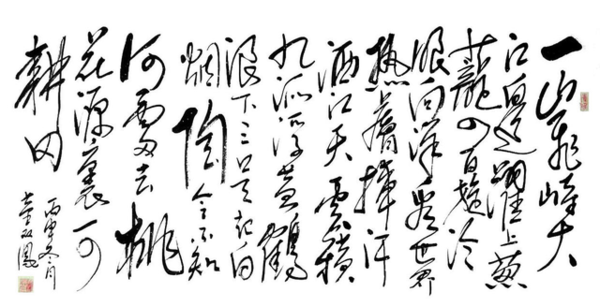 一山飛峙大
江邊躍上葱
蘢四百旋冷
眼向洋看世界
热膚揮汗
洒江天雲横
九派浮黄鶴
浪下三吴起白
烟陶令不知
何處去桃
花源裏可
耕田
丙申冬月